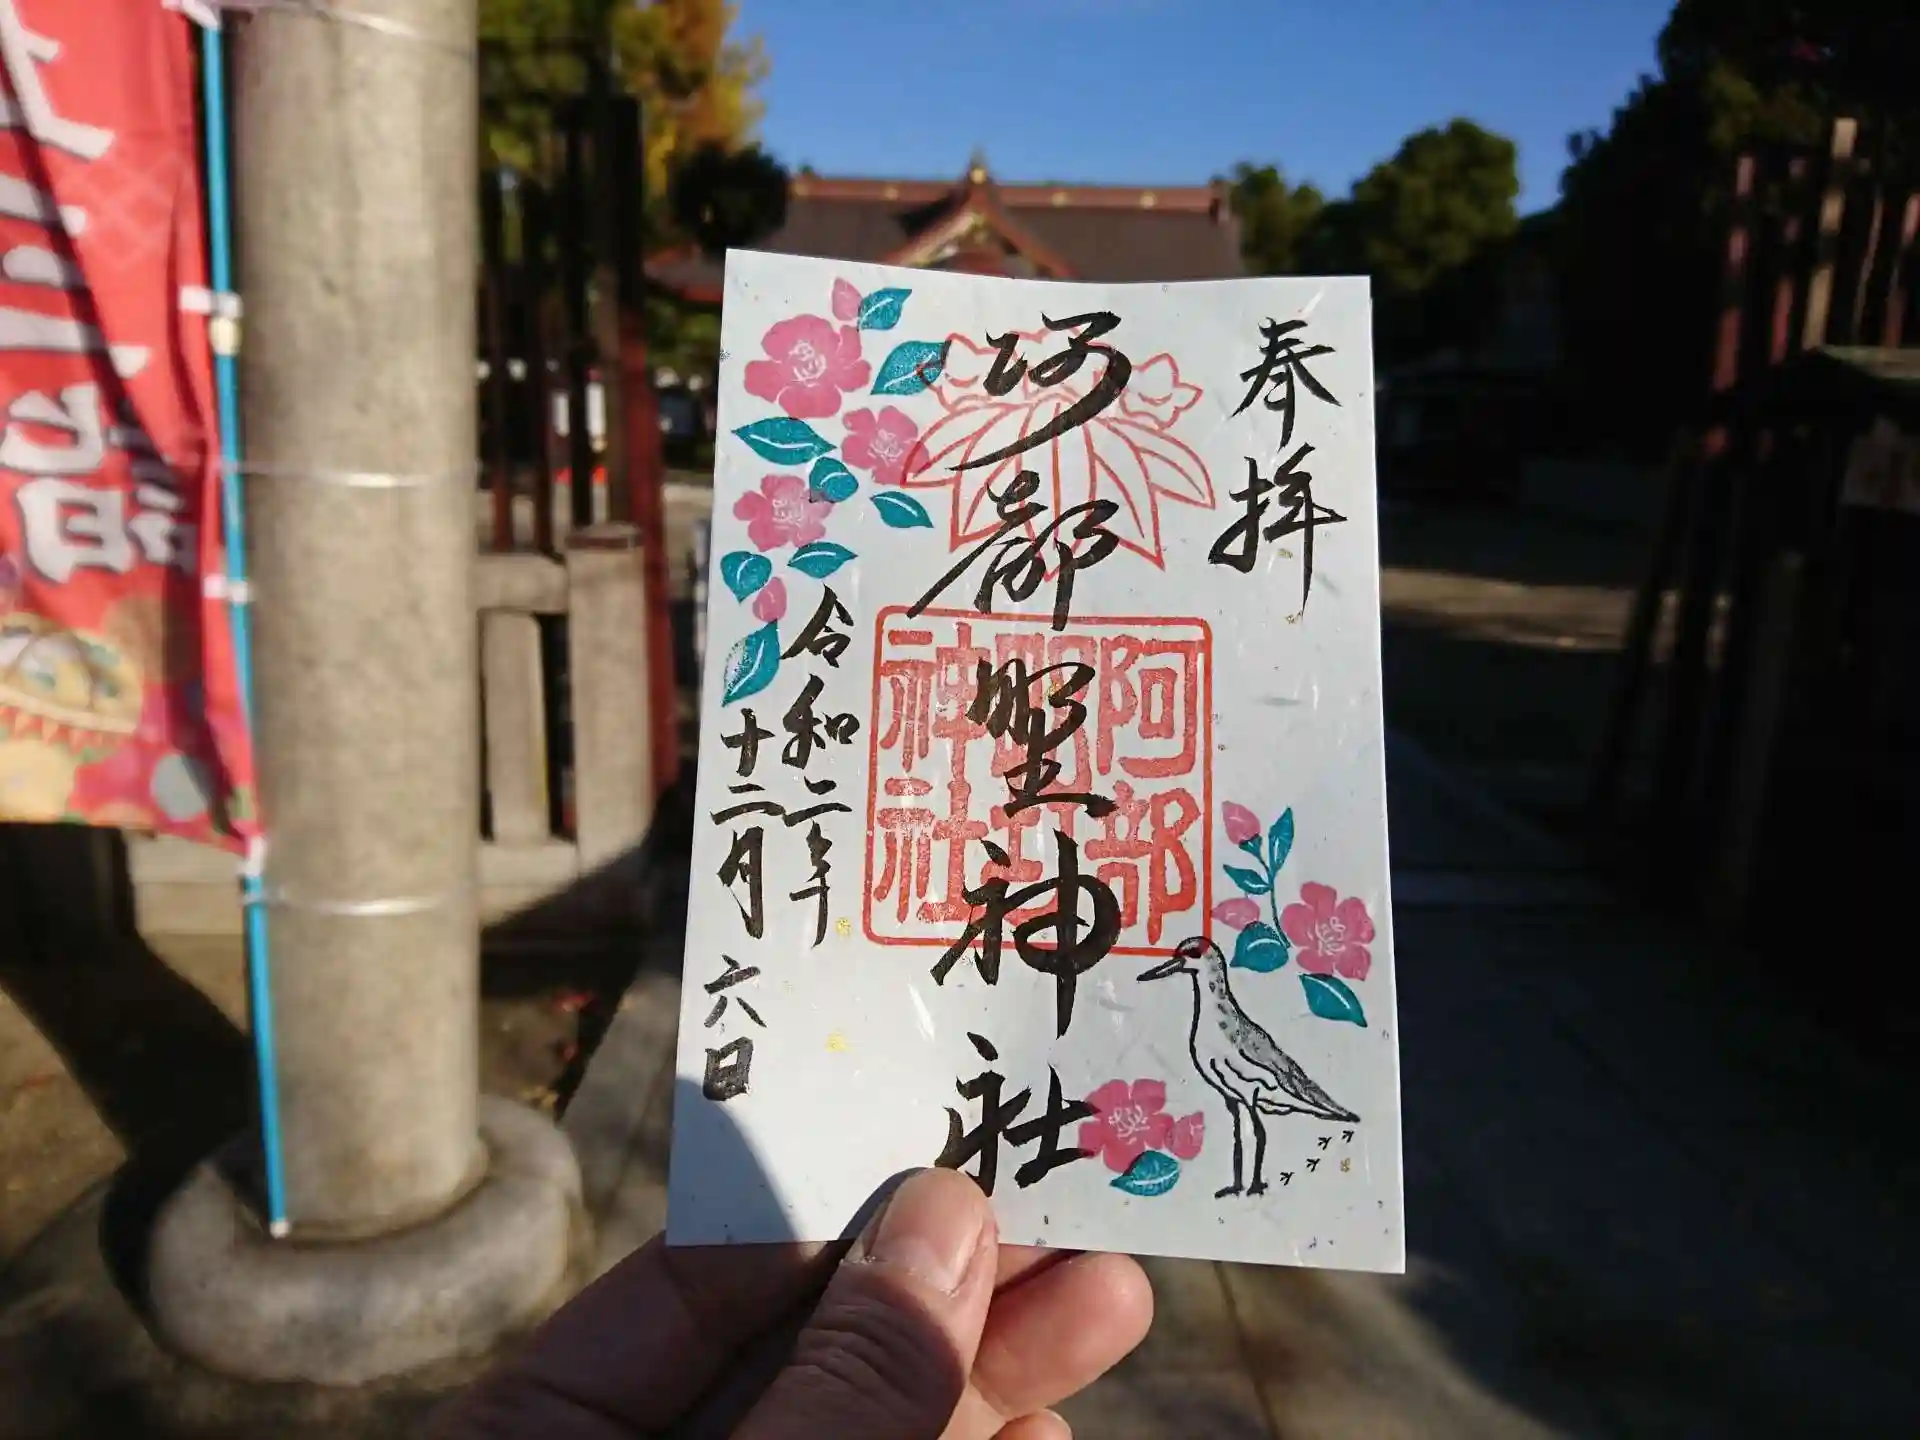 七五三詣
奉拝
阿部野神社
令和二年
十二月六日
阿部
野
神社